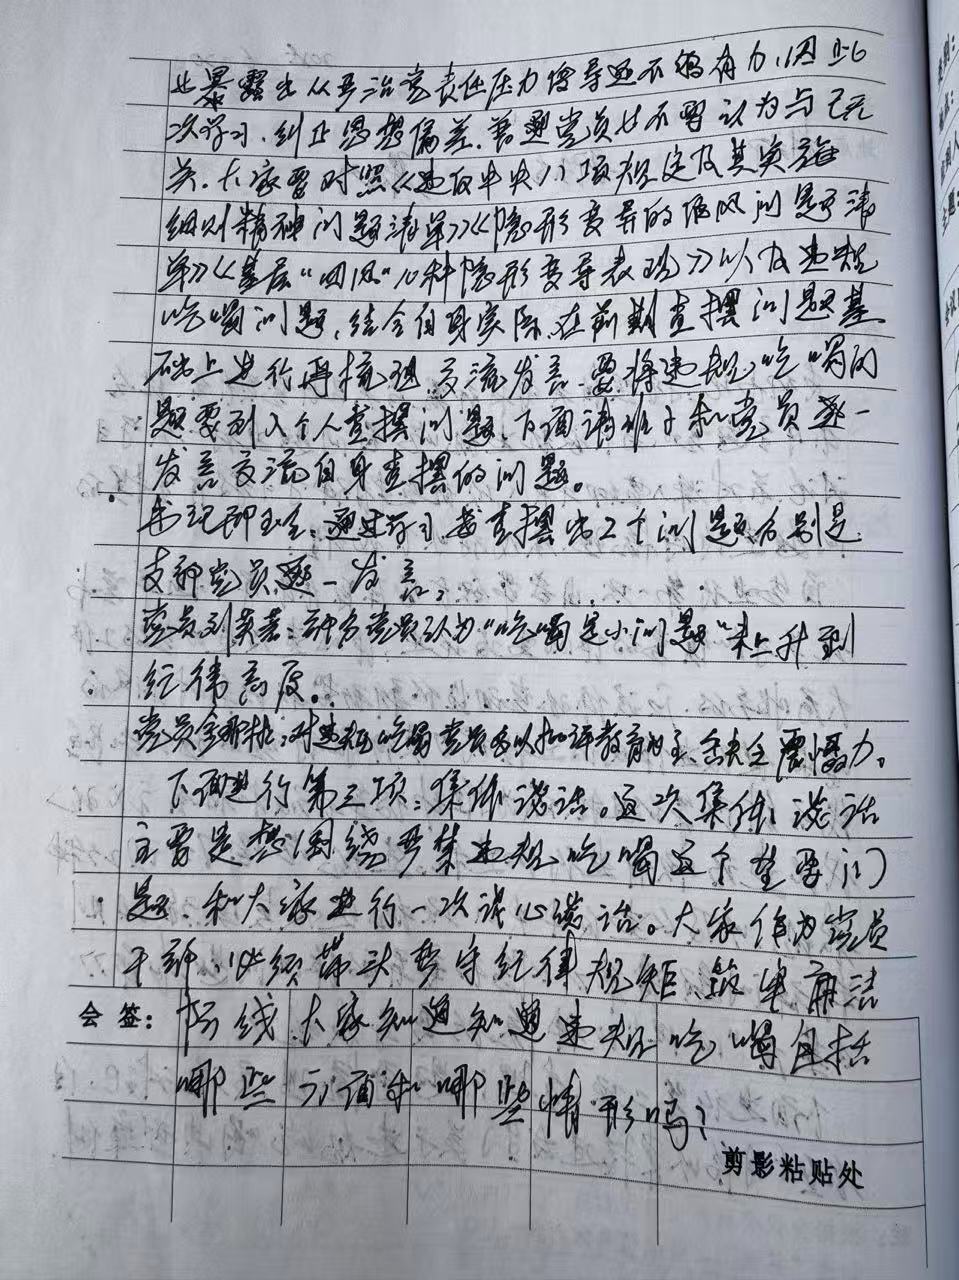 也暴露出从严治党责任压力传导还不够有力,因此
次学习,纠正思想偏差,普通党员也不要认为与己无
关,大家要对照《违反中央八项规定及其实施
细则精神问题清单》《隐形变异的作风问题清
单》《基层“四风”八种隐形变异表现》以及违规
吃喝问题,结合自身实际,在前期查摆问题基
础上进行再梳理,交流发言,要将违规吃喝问
题要列入个人查摆问题,下面请班子和党员逐一
发言交流自身查摆的问题。
通过学习,查摆出2个问题,分别是
支部党员逐一发言,
党员刘英:部分党员认为“吃喝是小问题”未上升到
纪律高度。
党员金:对违规吃喝党员多以批评教育为主,震慑力。
下面进行第三项:集体谈话。这次集体谈话
主要是想围绕严禁违规吃喝这个重要问
题,和大家进行一次谈心谈话。大家作为党员
干部,必须带头遵守纪律规矩,筑牢廉洁
会签: 防线,大家知道知道违规吃喝包括
哪些方面和哪些情形吗?
剪影粘贴处